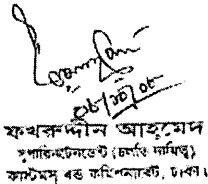 ০৮/১০/০৮
ফখরুদ্দীন আহমেদ
সুপারিনটেনডেন্ট (চলতি দায়িত্ব)
কাস্টমস্ বন্ড কমিশনারেট, ঢাকা।